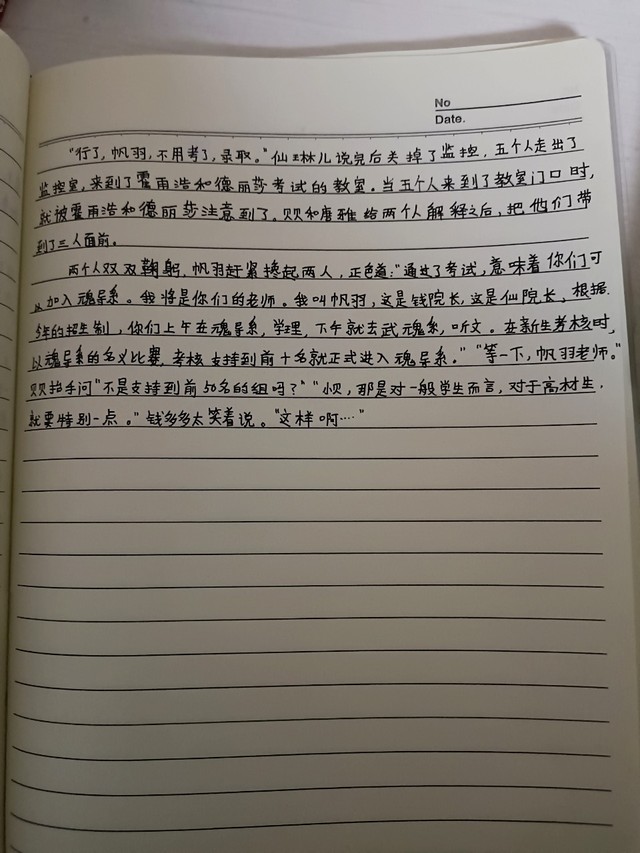 No
Date.
"行了,帆羽,不用考了,录取。"仙琳儿说完后关掉了监控,五个人走出了
监控室,来到了霍雨浩和德丽莎考试的教室。当五个人来到了教室门口时,
就被霍雨浩和德丽莎注意到了。贝贝和唐雅给两个人解释之后,把他们带
到了三人面前。
两个人双双鞠躬,帆羽赶紧搀起两人,正色道:"通过了考试,意味着你们可
以加入魂导系。我将是你们的老师。我叫帆羽,这是钱院长,这是仙院长,根据
今年的招生制,你们上午在魂导系,学理,下午就去武魂系,听文。在新生考核时,
以魂导系的名义比赛,考核支持到前十名就正式进入魂导系。""等一下,帆羽老师。"
贝贝抬手问"不是支持到前50名的组吗?""小贝,那是对一般学生而言,对于高材生,
就要特别一点。"钱多多太笑着说。"这样啊····"